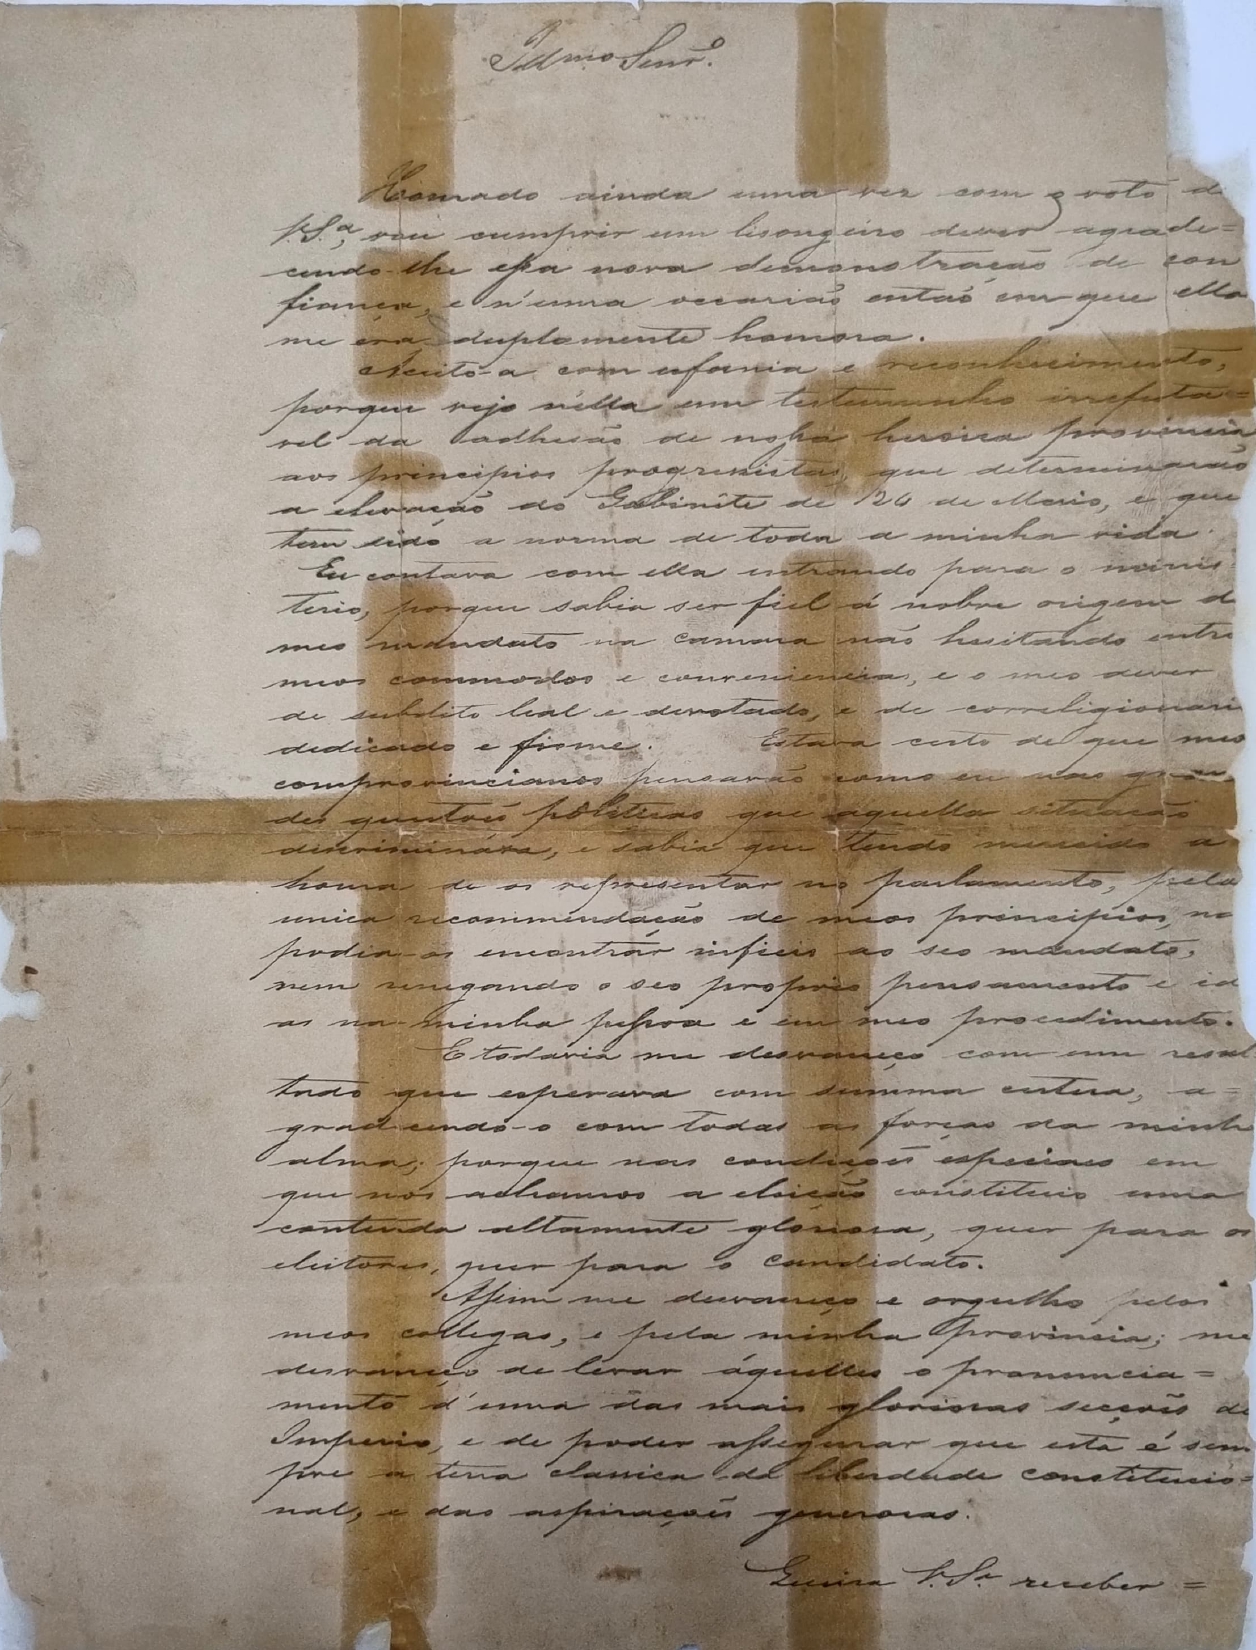 Illmo Senr.
Honrado ainda uma vez com o voto d
V.Sª, vou cumprir um lisongeiro dever agrade=
cendo-lhe essa nova demonstração de con
fiança, e n'uma occasião então em que ella
me era duplamente honrosa.
Aceito-a com ufania e reconhecimento,
porque vejo n'ella um testemunho irrefuta=
vel da adhesão de nossa heroica provincia
aos principios progressistas, que determinarão
a elevação do Gabinete de 24 de Maio, e que
tem sido a norma de toda a minha vida.
Eu contava com ella entrando para o minis
terio, porque sabia ser fiel á nobre origem d
meo mandato na camara não hesitando entre
meos commodos e conveniencias, e o meo dever
de subdito leal e devotado, e de correligionari
dedicado e firme. Estava certo de que meos
comprovincianos pensavão como eu nas gran
des questões politicas que aquella situação
discriminára, e sabia que tendo merecido a
honra de os representar no parlamento, pela
unica recommendação de meos principios, na
podia os encontrar infieis ao seo mandato,
nem renegando o seo proprio pensamento e id
as na minha pessoa e em meo procedimento.
E todavia me desvaneço com um resul
tado que esperava com summa certesa, a=
gradecendo-o com todas as forças da minh
alma; porque nas condições especiaes em
que nos achamos a eleição constituio uma
contenda altamente gloriosa, quer para os
eleitores, quer para o candidato.
Assim me desvaneço e orgulho pelos
meos collegas, e pela minha provincia; me
desvaneço de levar áquelles o pronuncia=
mento d'uma das mais gloriosas secções do
Imperio, e de poder assegurar que esta é sem
pre a terra classica da liberdade constitucio=
nal, e das aspirações generosas.
Queira V.Sª receber=